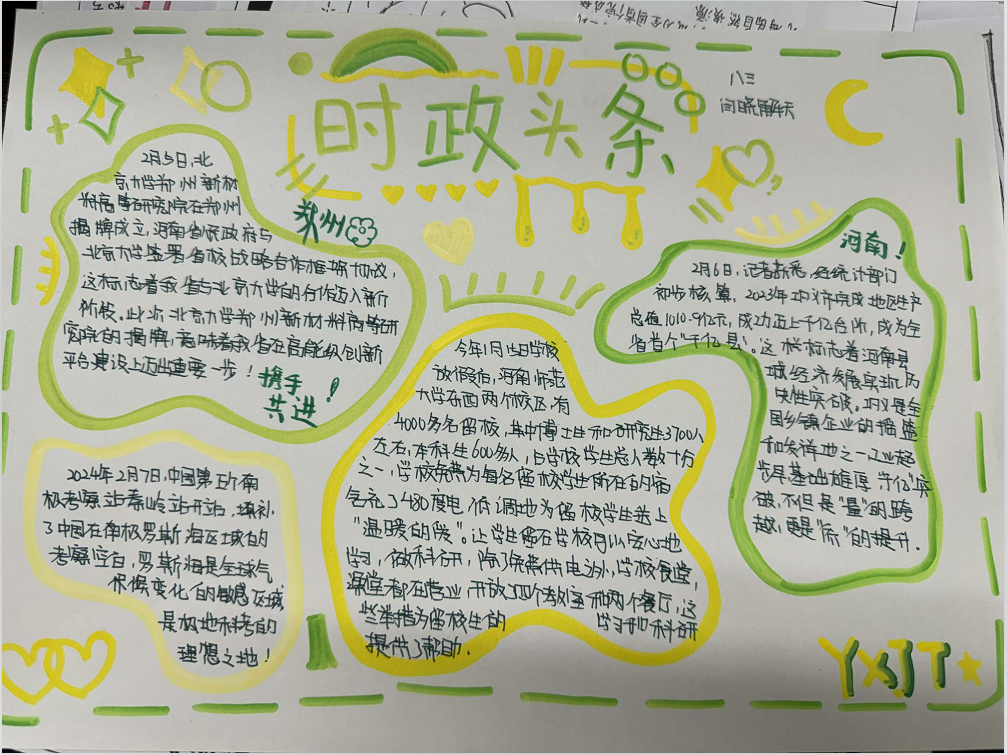 时政头条
八三
闫晓解天
2月5日,北
京大学郑州新材
料高等研究院在郑州
揭牌成立,河南省人民政府与
北京大学签署省校战略合作框架协议,
这标志着我省与北京大学的合作迈入新
阶段。此次北京大学郑州新材料高等研
究院的揭牌,意味着我省在高能级创新
平台建设上迈出重要一步!
郑州
携手
共进!
河南!
2月6日,记者获悉,经统计部门
初步核算,2023年巩义市完成地区生产
总值1010.9亿元,成功迈上千亿台阶,成为全
省首个"千亿县"。这一标志着河南县
域经济发展实现历
史性突破。巩义是全
国乡镇企业的
和发祥地之一,工业起
步早基础雄厚。千亿"突
破,不但是"量"的跨
越,更是"质"的提升.
今年1月15日学校
放假后,河南师范
大学东西两个校区,有
4000多名留校,其中博士生和研究生3700人
左右,本科生600多人,占学校学生总人数十分
之一,学校免费为每名留校学生所在的宿
舍充了480度电,低调地为留校学生送上
"温暖的暖"。让学生留在学校可以安心地
学习,做科研,除了免费供电之外,学校食堂,
澡堂都在营业,开放了四个教室和两个餐厅,这
些举措为留校生的 学习和科研
提供了帮助.
2024年2月7日,中国第五个南
极考察站秦岭站开站,填补
了中国在南极罗斯海区域的
考察空白,罗斯海是全球气
候变化的敏感区域
是极地科考的
理想之地!
YXJT